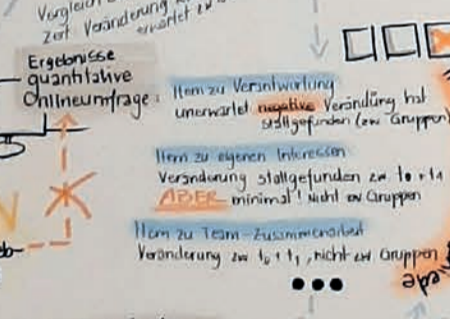 Vergleich
zent Veränderung
erwartet zw
Ergebnisse
quantitative
Onlineumfrage:
Item zu Verantwortung
unerwartet negative Verändung hat
stattgefunden (zw Gruppen)
Item zu eigenen Interessen
Veränderung stattgefunden zw t0 + t1
ABER minimal! Nicht zw Gruppen
Item zu Team-Zusammenarbeit
Veränderung zw t0 + t1, nicht zw Gruppen